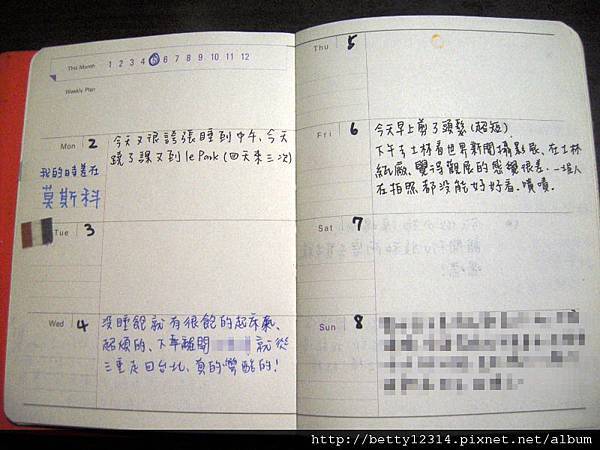 This Month 1 2 3 4 5 6 7 8 9 10 11 12
Weekly Plan
Mon 2
今天又很誇張睡到中午、今天
蹺了課又到 le Park (四天來三次)
我的時差在
莫斯科
Tue 3
Wed 4
沒睡飽就有很飽的起床氣、
超煩的、下午離開 就從
三重走回台北、真的彎酷的!
Thu 5
Fri 6
今天早上剪了頭髮(超短)
下午去士林看世界新聞攝影展、在士林
紙廠、覺得觀展的感覺很差、一堆人
在拍照都沒能好好看、嘖嘖.
Sat 7
Sun 8
http://betty12314.pixnet.net/album